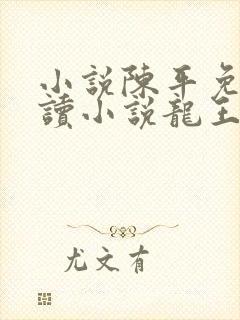 小說陳平免
讀小說龍王
尤文有